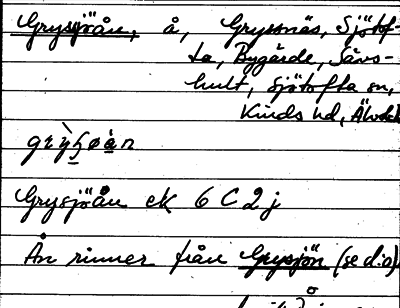 Grysjöån, å, Gryssnäs, Sjötof-
ta, Bygärde, Sävs-
hult, Sjötofta sn,
Kinds hd, Älvsb
Grysjöån ek 6 C 2 j
Ån rinner från Grysjön (se d.o)